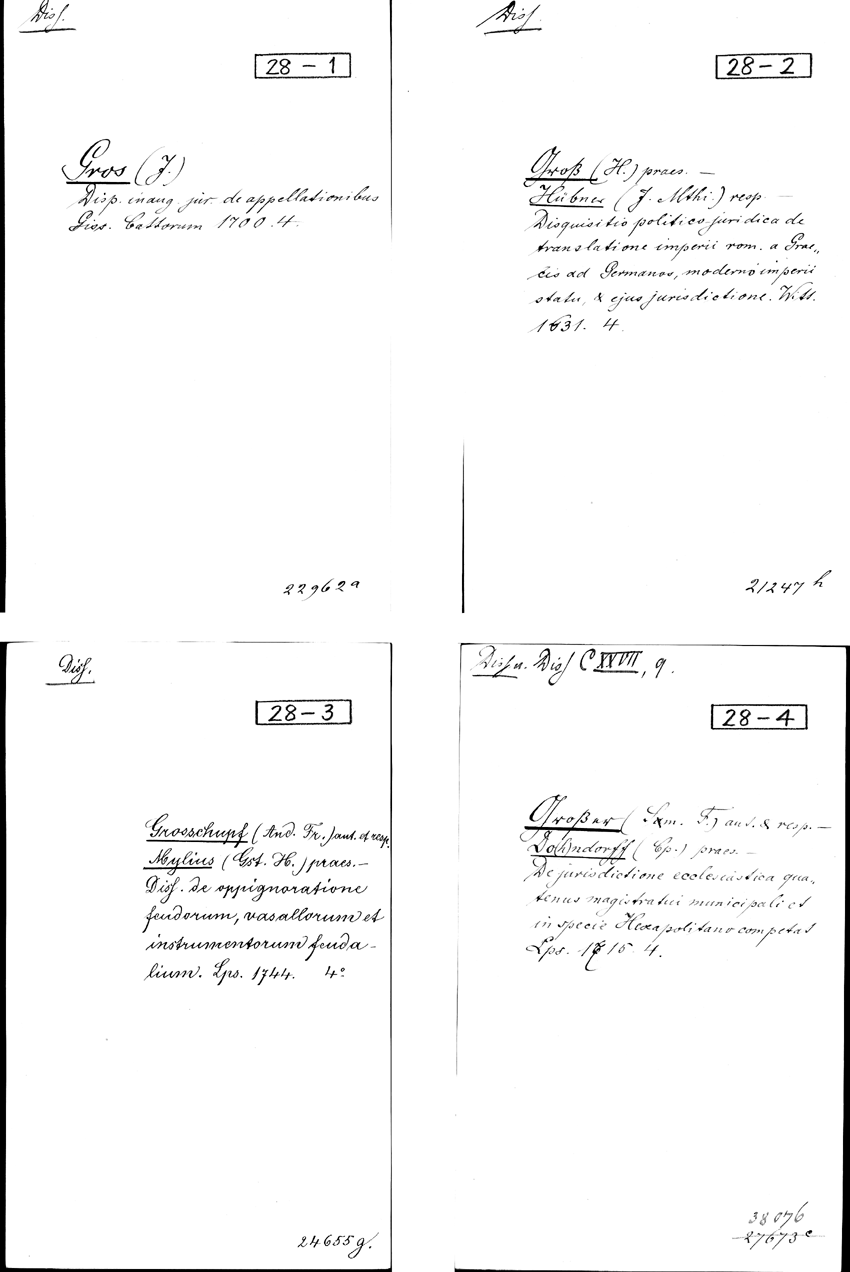 Diss.
28 - 1
Gros (J.)
Disp. inaug. jur. de appellationibus
Giss. Cattorum 1700. 4.
22962a
Diss.
28 - 2
Groß (H.) praes. —
Hübner (J. Mthi.) resp. —
Disquisitio politico juridica de
translatione imperii rom. a Grae„
cis ad Germanos, moderno imperii
statu, & ejus jurisdictione. Witt.
1631. 4.
21247 h
Diss.
28 - 3
Grosschupf (And. Fr.) aut. et resp.
Mylius (Gst. H.) praes. —
Diss. de oppignoratione
feudorum, vasallorum et
instrumentorum feuda-
lium. Lps. 1744. 4°
24655g.
Diss. u. Diss C XXVII, 9.
28 - 4
Großer (Sam. F.) aut. & resp. —
Do(h)ndorff (Cp.) praes. —
De jurisdictione ecclesiastica qua„
tenus magistratui municipali et
in specie Hexapolitano competat
Lps. 1715. 4.
38076
27673c